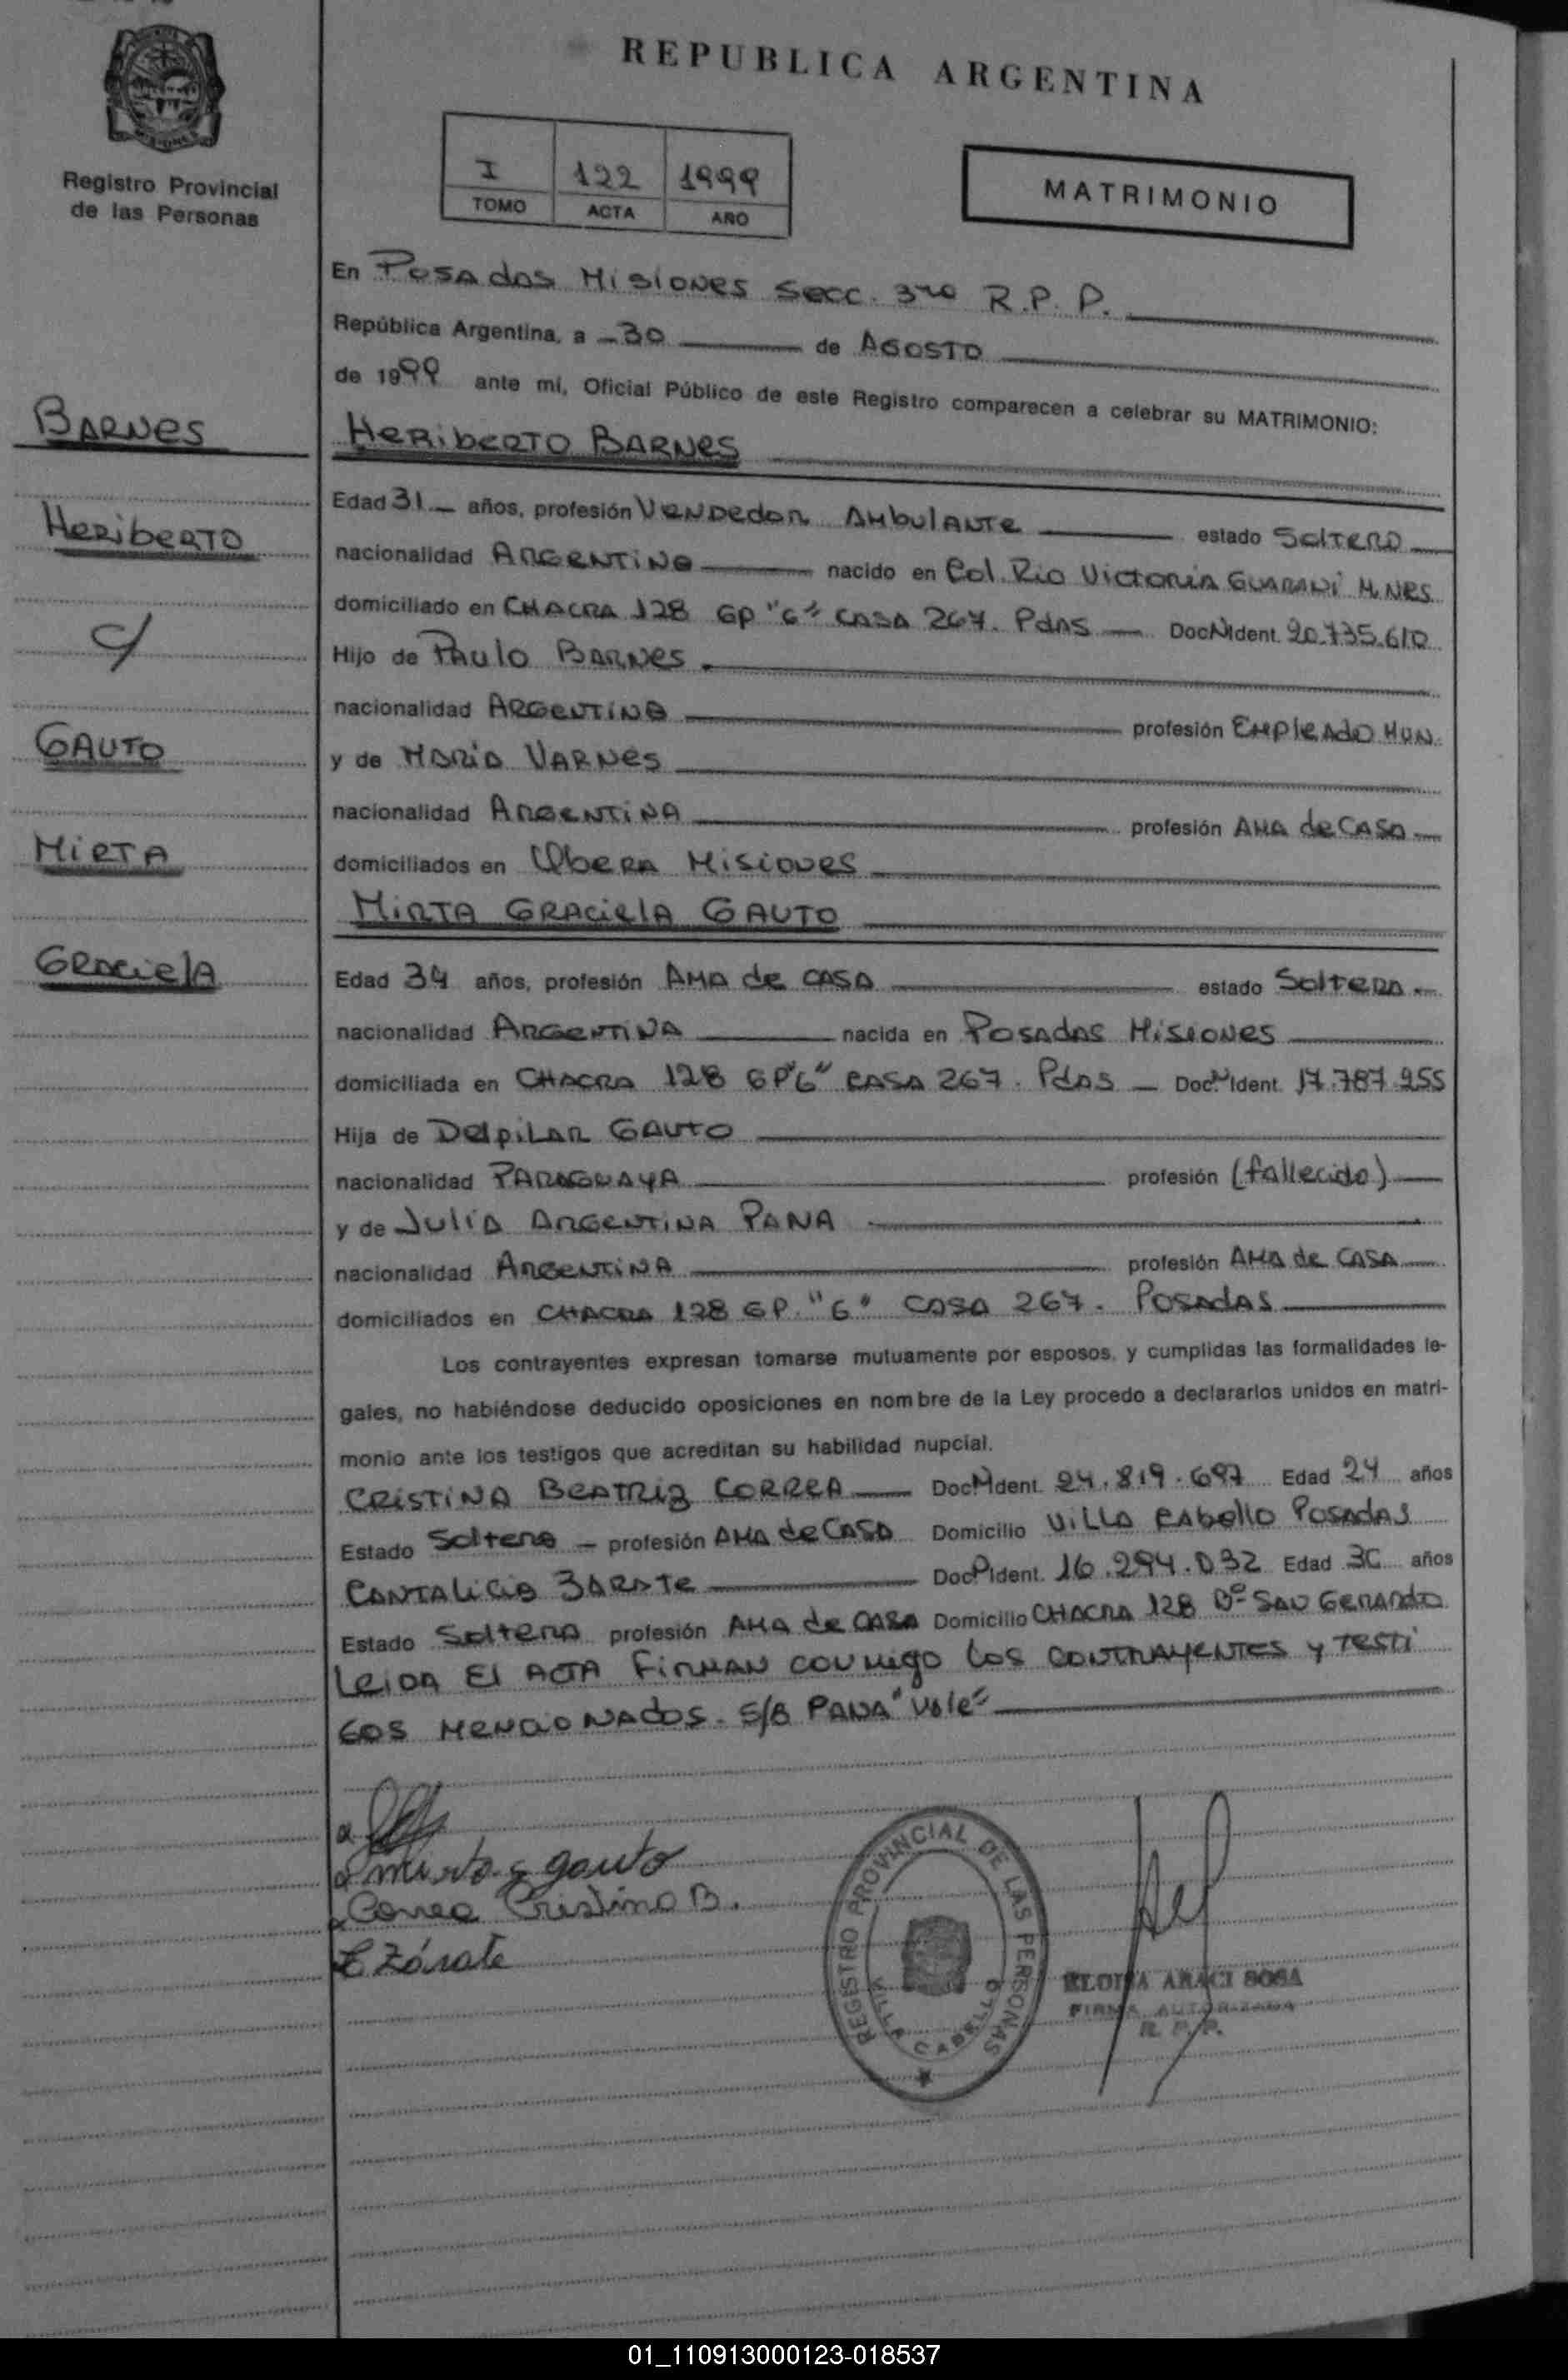 REPUBLICA ARGENTINA
Registro Provincial
de las Personas
I 122 1999
TOMO ACTA AÑO
MATRIMONIO
En Posadas Misiones Secc. 3ra R.P.P.
República Argentina, a 30 de Agosto
de 1999 ante mí, Oficial Público de este Registro comparecen a celebrar su MATRIMONIO:
BARNES
Heriberto BARNES
Edad 31 años, profesión Vendedor Ambulante estado Soltero
Heriberto
nacionalidad Argentina nacido en Col. Rio Victoria Guarani Mnes
domiciliado en CHACRA 128 GP "6" CASA 267. Pdas Doc.N.Ident. 20.735.610
c/
Hijo de Paulo Barnes
nacionalidad Argentina profesión Empleado Mun.
GAUTO
y de Maria Varnes
nacionalidad Argentina profesión Ama de Casa
MIRTA
domiciliados en Obera Misiones
MIRTA GRACIELA GAUTO
GRACIELA
Edad 34 años, profesión Ama de casa estado Soltera
nacionalidad Argentina nacida en Posadas Misiones
domiciliada en CHACRA 128 GP "6" CASA 267. Pdas Doc.N.Ident. 17.787.255
Hija de Delpilar Gauto
nacionalidad Paraguaya profesión (fallecido)
y de Julia Argentina PANA
nacionalidad Argentina profesión Ama de Casa
domiciliados en CHACRA 128 GP. "6" CASA 267. Posadas
Los contrayentes expresan tomarse mutuamente por esposos, y cumplidas las formalidades le-
gales, no habiéndose deducido oposiciones en nombre de la Ley procedo a declararlos unidos en matri-
monio ante los testigos que acreditan su habilidad nupcial.
CRISTINA BEATRIZ CORREA Doc.N.Ident. 24.819.697 Edad 24 años
Estado Soltera profesión Ama de Casa Domicilio Villa Cabello Posadas
Cantalicia Zarate Doc. Ident. 16.294.032 Edad 36 años
Estado Soltera profesión Ama de Casa Domicilio CHACRA 128 Bº San Gerardo
Leida El Acta Firman conmigo los contrayentes y testi
gos mencionados. S/B PANA "vale"
mirta g gauto
Correa Cristina B.
C Zárate
REGISTRO PROVINCIAL DE LAS PERSONAS
VILLA CABELLO
ELOISA ARACI SOSA
FIRMA AUTORIZADA
R. P. P.
01_110913000123-018537